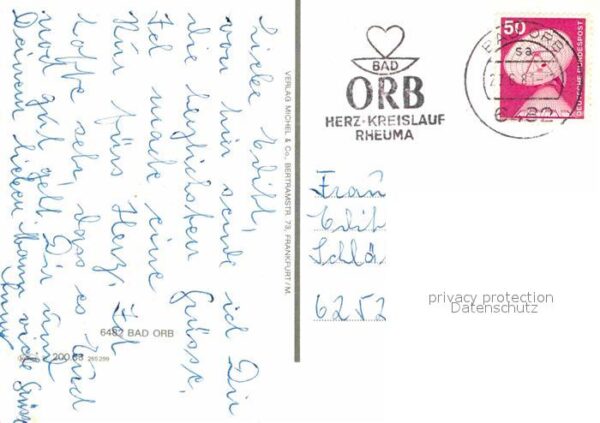 Liebe Edith,
von mir sende ich Dir
die herzlichsten Grüsse.
Ich mache eine
Kur fürs Herz. Ich
hoffe sehr, dass es
noch gut geht Dir und
Deinem lieben Mann viele Grüsse
VERLAG MICHEL & Co., BERTRAMSTR. 73, FRANKFURT/M.
6482 BAD ORB
200.68 265 299
BAD
ORB
HERZ-KREISLAUF
RHEUMA
BAD ORB
sa
6482
50
DEUTSCHE BUNDESPOST
Frau
Edith
6252
privacy protection
Datenschutz